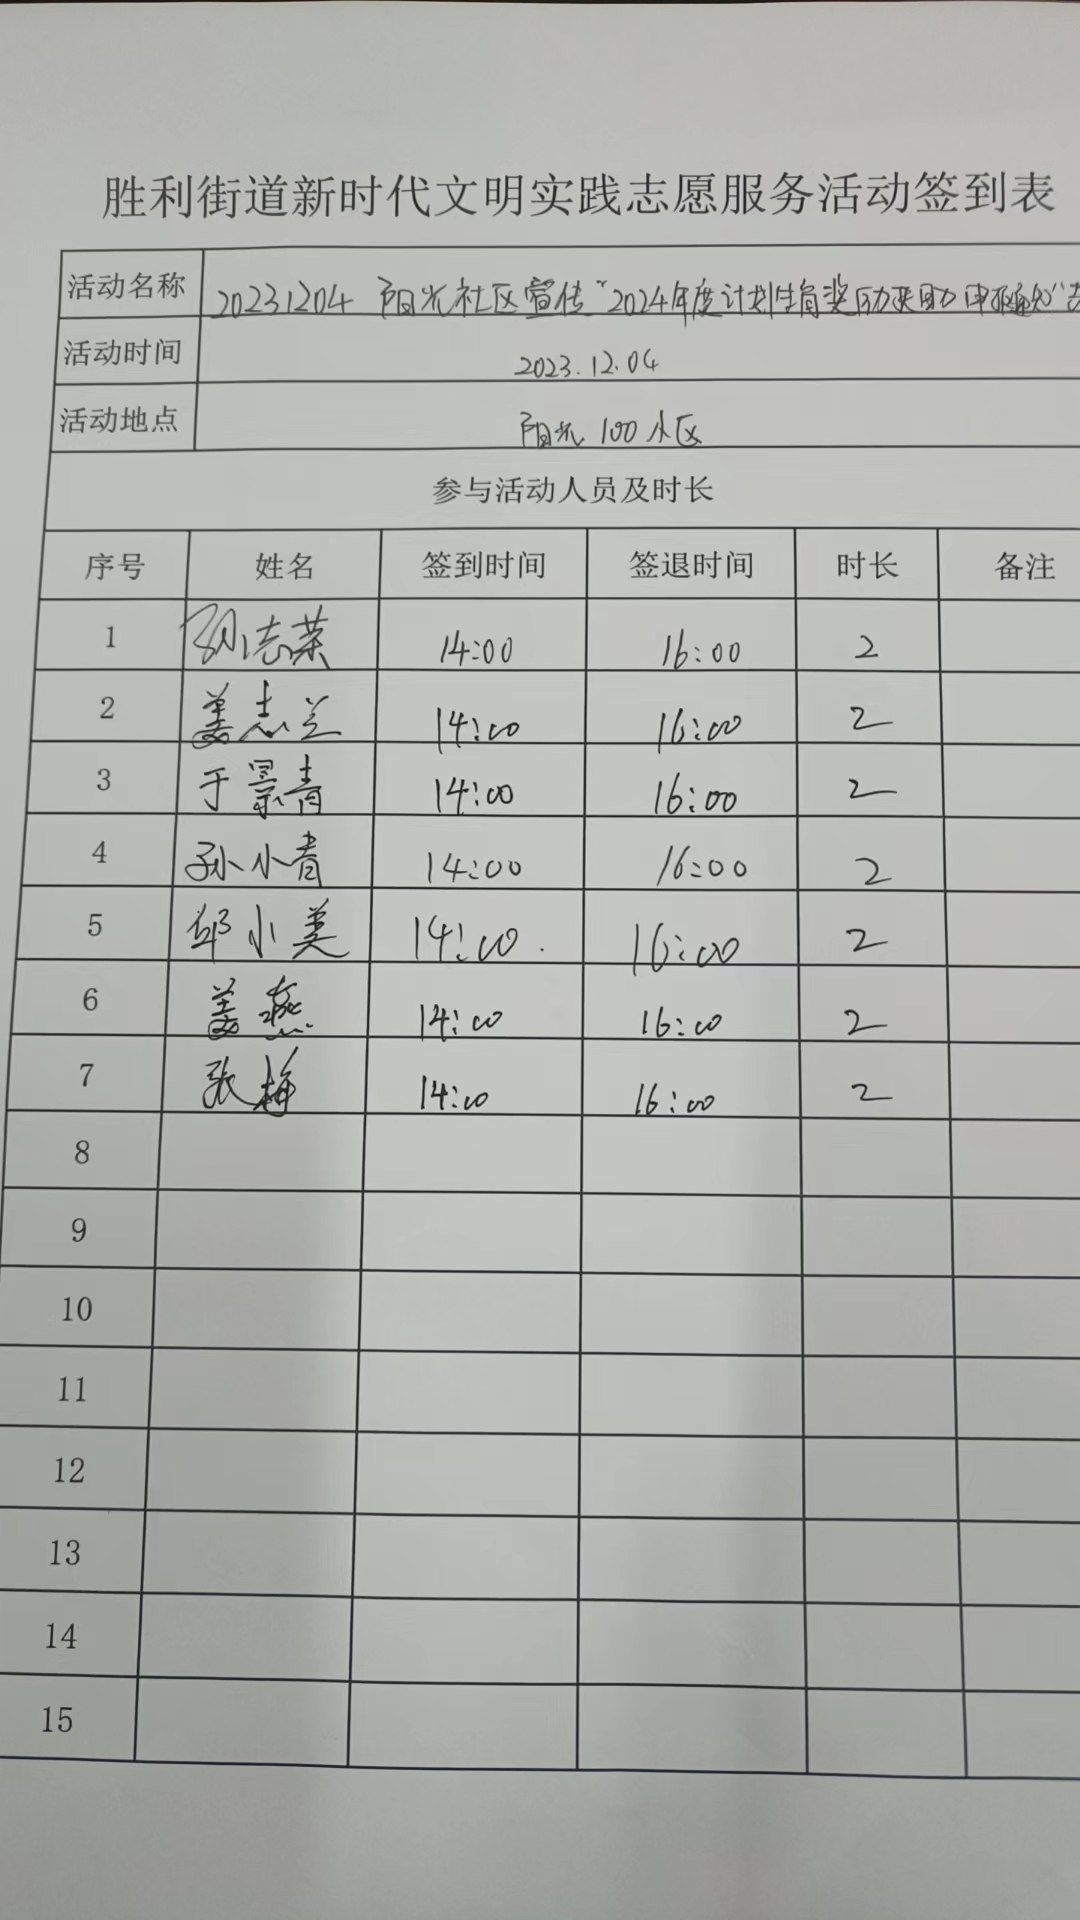 胜利街道新时代文明实践志愿服务活动签到表
活动名称 20231204 阳光社区宣传"2024年度计划生育奖励扶助申报通知"
活动时间 2023.12.04
活动地点 阳光100小区
参与活动人员及时长
序号 姓名 签到时间 签退时间 时长 备注
1 孙志荣 14:00 16:00 2
2 姜志兰 14:00 16:00 2
3 于景青 14:00 16:00 2
4 孙小青 14:00 16:00 2
5 邹小美 14:00 16:00 2
6 姜燕 14:00 16:00 2
7 张梅 14:00 16:00 2
8
9
10
11
12
13
14
15